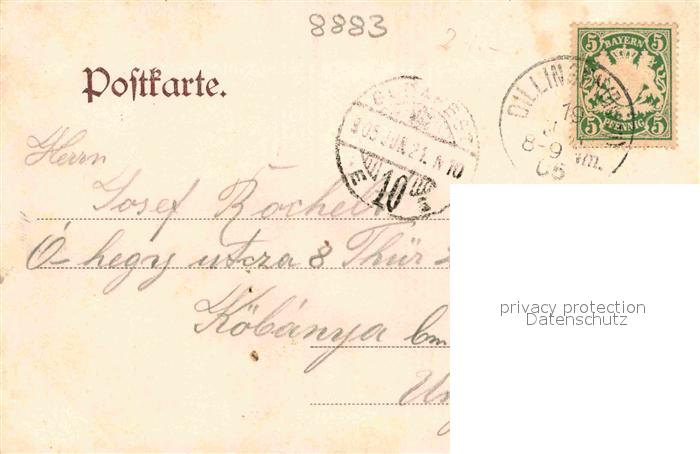 8883
Postkarte.
5 BAYERN 5
5 PFENNIG 5
DILLINGEN
19
8-9 Nm.
05
BUDAPEST
905 JUN. 21. N 10
10
E
Herrn
Josef
Ó-hegy utcza 8 Thür
Kőbánya
privacy protection
Datenschutz